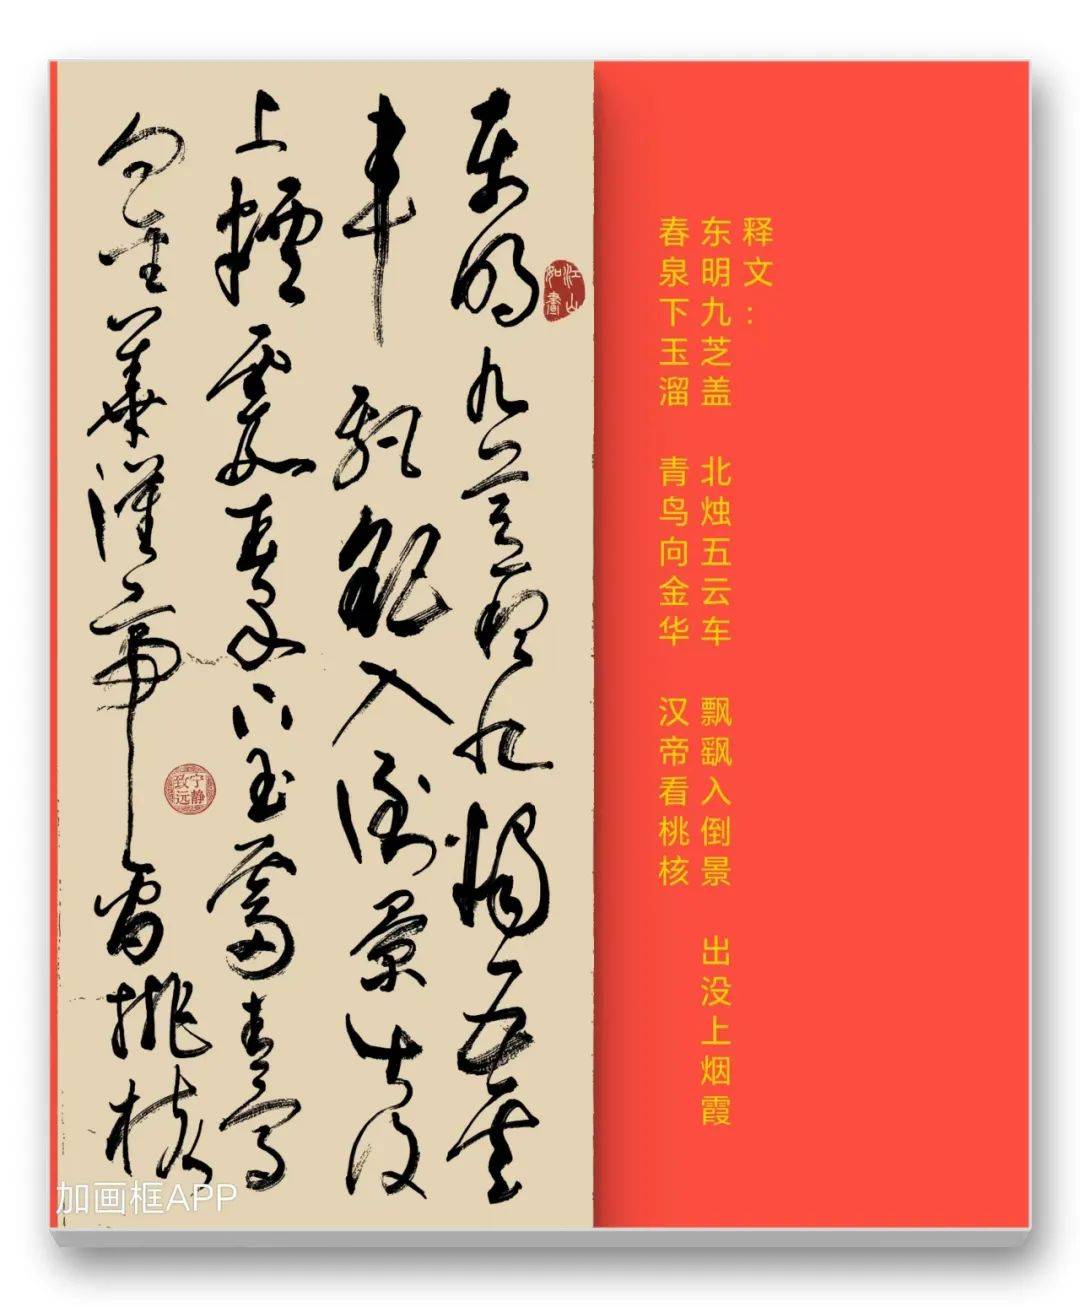 释文：
东明九芝盖 北烛五云车 飘飖入倒景 出没上烟霞
春泉下玉溜 青鸟向金华 汉帝看桃核
東明九芝盖北燭五雲
車飄飖入倒景出没
上煙霞春泉下玉霤青鳥
向金華漢帝看桃核
江山如畫
宁静致远
加画框APP